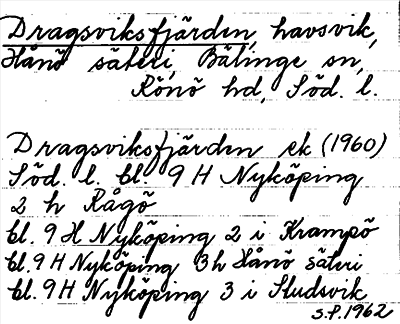 Dragsviksfjärden, havsvik,
Hånö säteri, Bälinge sn,
Rönö hd, Söd. l.
Dragsviksfjärden ek (1960)
Söd. l. bl. 9 H Nyköping
2 h Rågö
bl. 9 H Nyköping 2 i Krampö
bl. 9 H Nyköping 3h Hånö säteri
bl. 9 H Nyköping 3 i Studsvik
S.P. 1962